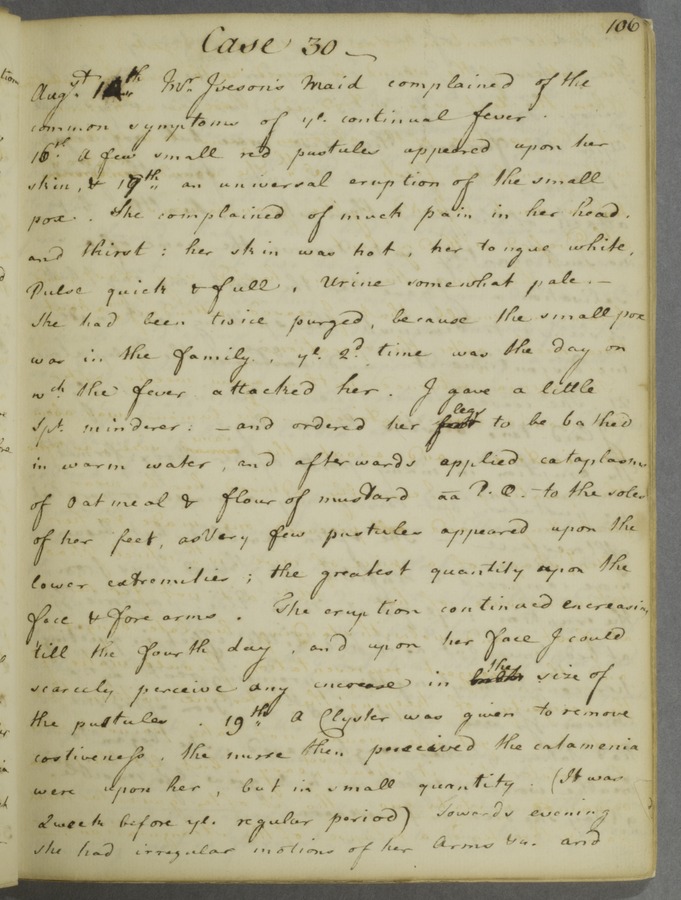 106
Case 30
Augst. 14th Mr. Iveson's Maid complained of the
common symptoms of ye. continual fever.
16th. A few small red pustules appeared upon her
skin, & 19th an universal eruption of the small
pox. She complained of much pain in her head,
and thirst: her skin was hot, her tongue white,
Pulse quick & full, Urine somewhat pale. —
She had been twice purged, because the small pox
was in the family, ye. 2d. time was the day on
wch the fever attacked her. I gave a little
Spt. minderer: — and ordered her legs to be bathed
in warm water, and afterwards applied cataplasms
of Oatmeal & flour of mustard aa P. Æ. to the soles
of her feet, as very few pustules appeared upon the
lower extremities; the greatest quantity upon the
face & fore arms. The eruption continued encreasing
till the fourth day, and upon her face I could
scarcely perceive any increase in the size of
the pustules. 19th A Clyster was given to remove
costiveness, the nurse then perceived the catamenia
were upon her, but in small quantity. (It was
a week before ye. regular period) Towards evening
she had irregular motions of her Arms &c. and